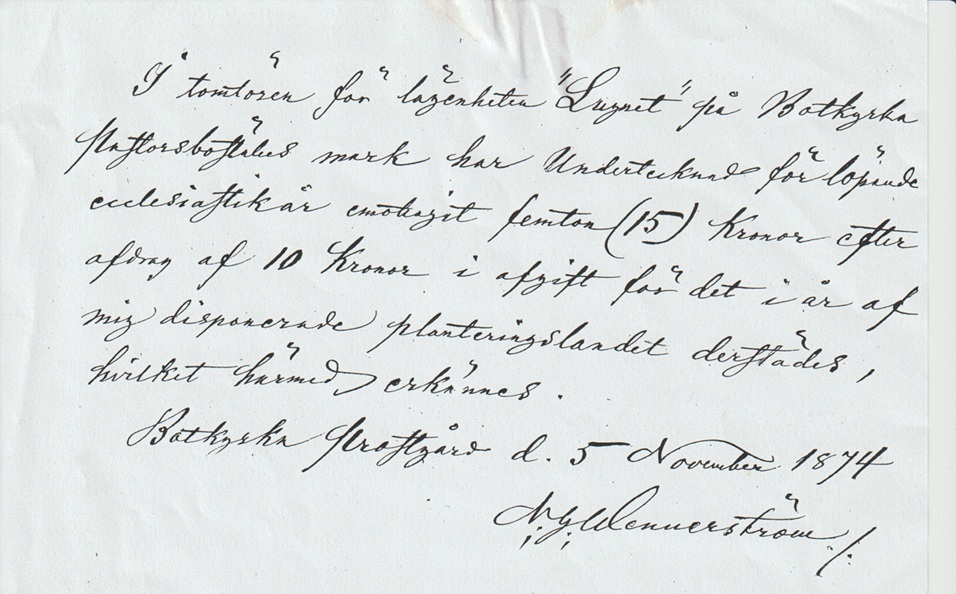 I tomtören för lägenheten "Lugnet" på Botkyrka
Pastorsboställes mark har Undertecknad för löpande
ecclesiastikår emottagit femton (15) Kronor efter
afdrag af 10 Kronor i afgift för det i år af
mig disponerade planteringslandet derstädes,
hvilket härmed erkännes.
Botkyrka Prostgård d. 5 November 1874
N. G. Wennerström ./.